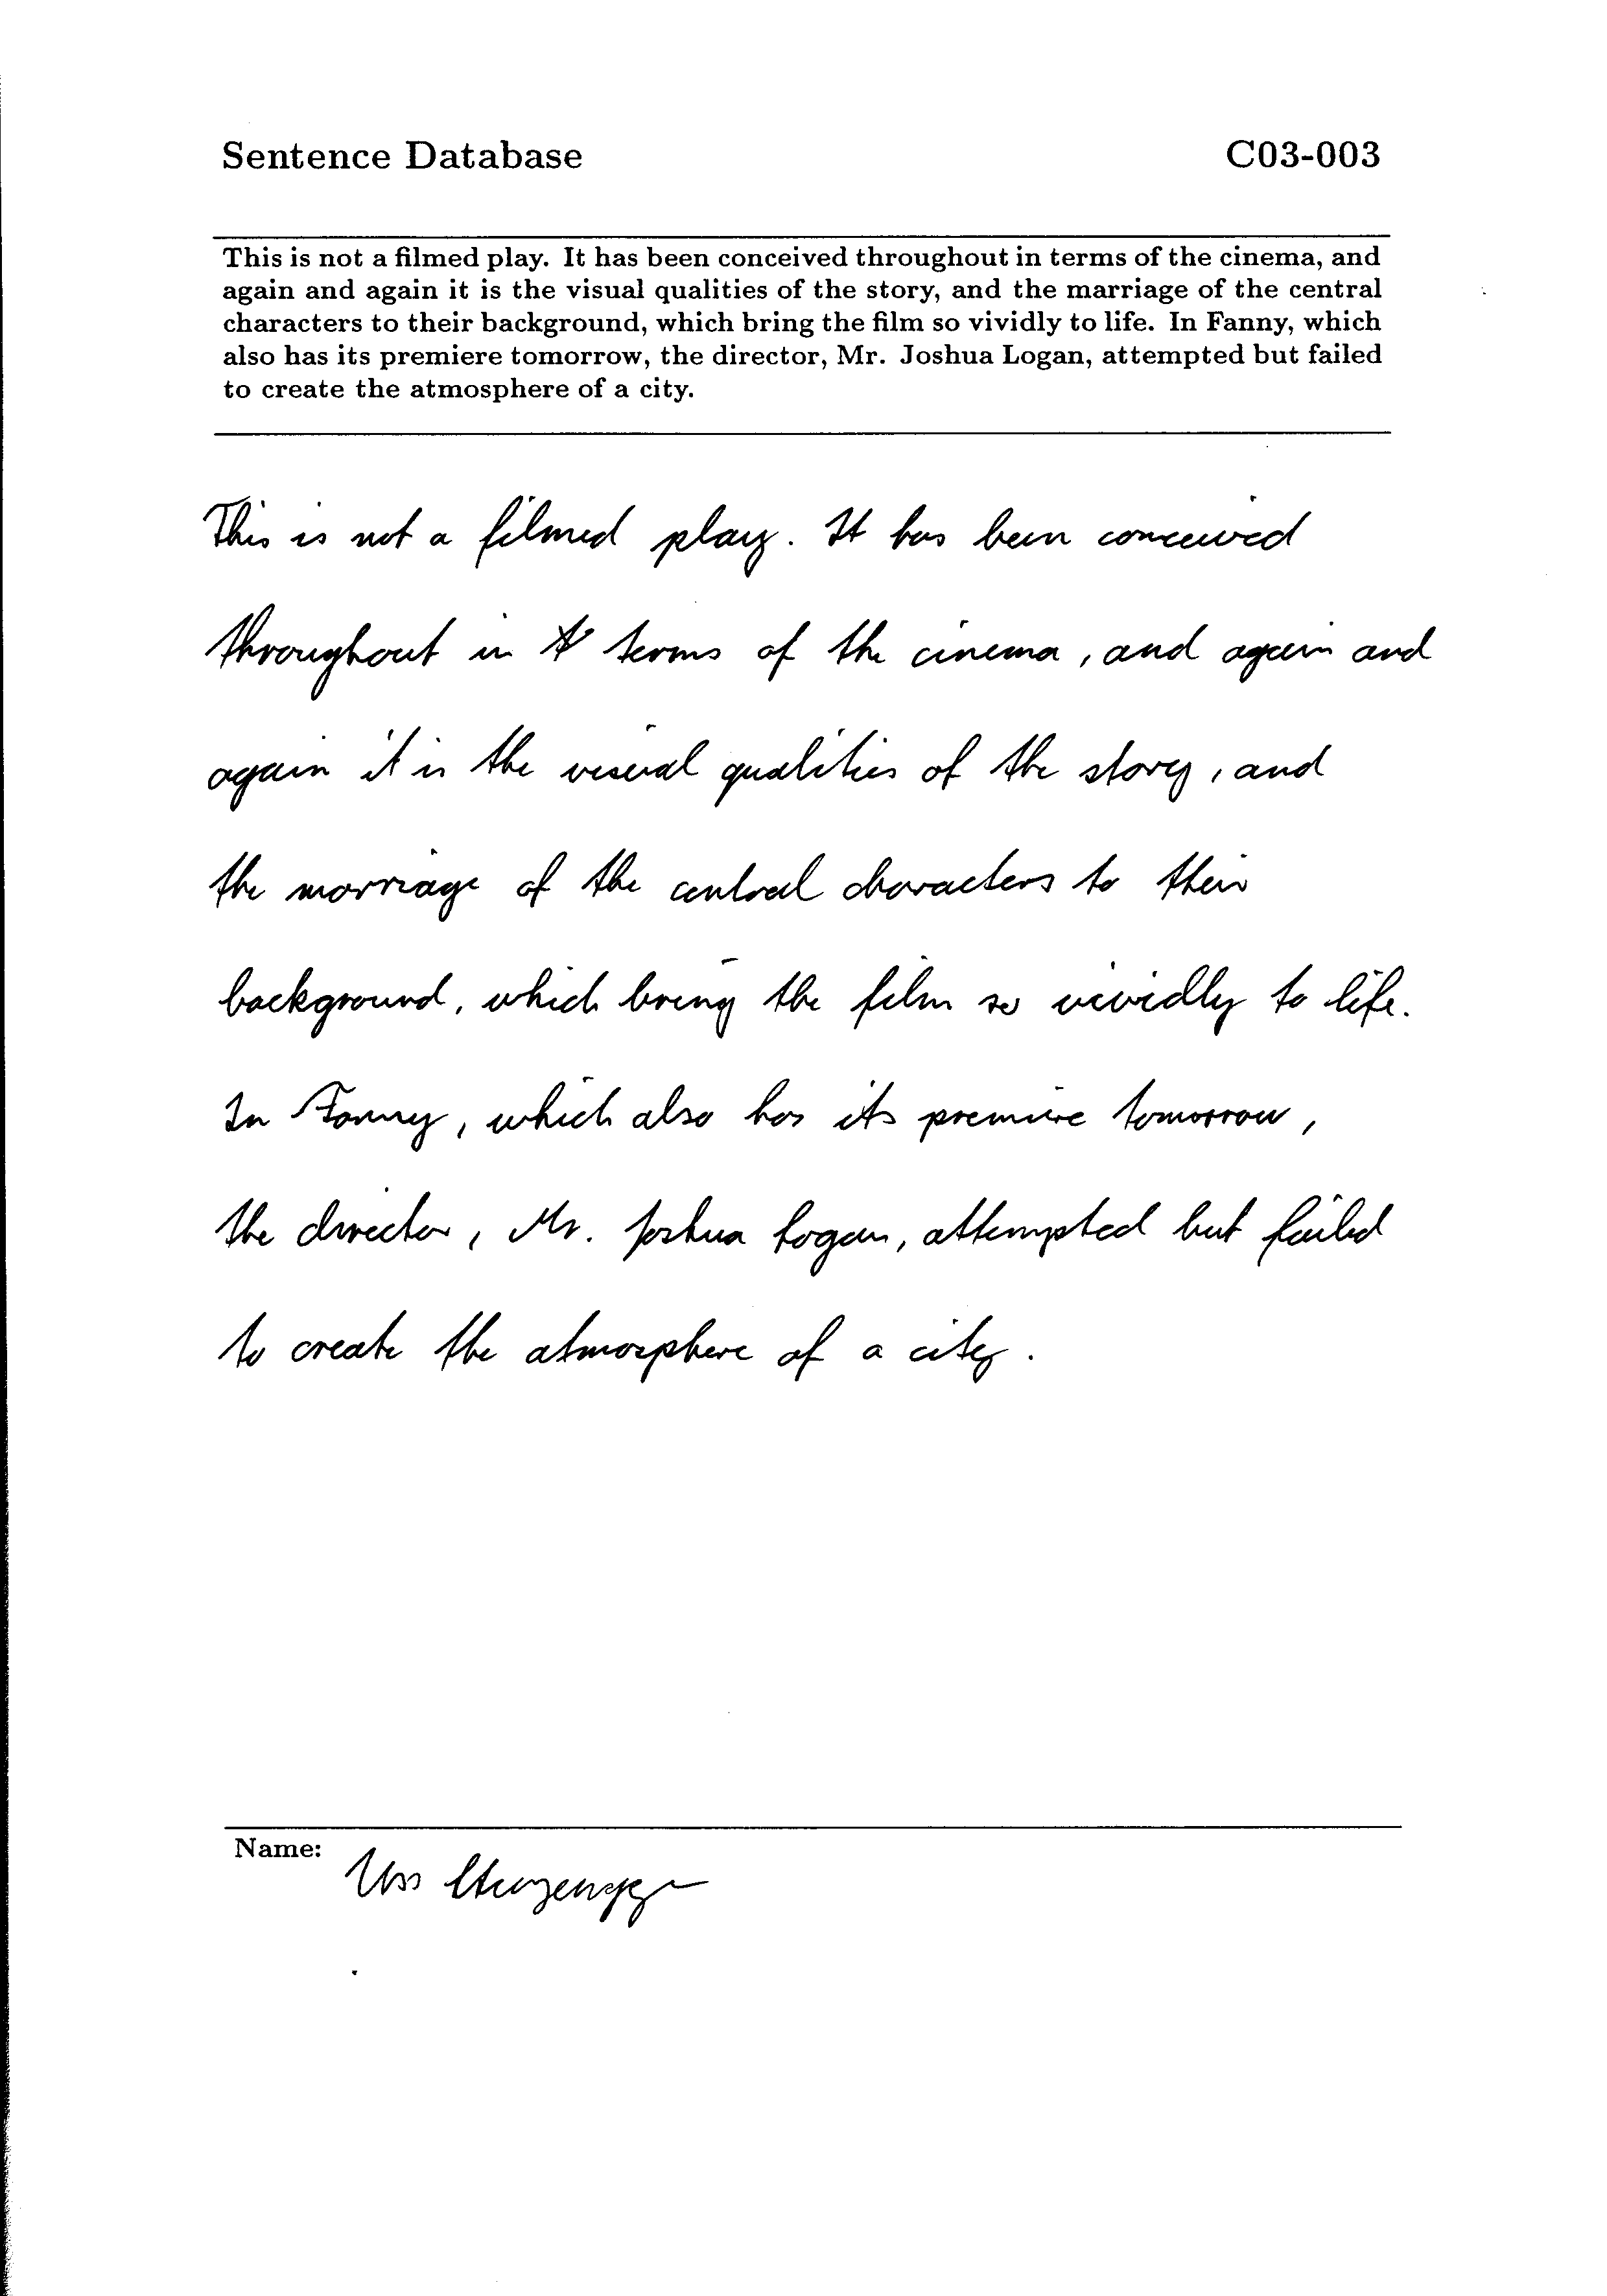 Sentence Database C03-003
This is not a filmed play. It has been conceived throughout in terms of the cinema, and
again and again it is the visual qualities of the story, and the marriage of the central
characters to their background, which bring the film so vividly to life. In Fanny, which
also has its premiere tomorrow, the director, Mr. Joshua Logan, attempted but failed
to create the atmosphere of a city.
This is not a filmed play. It has been conceived
throughout in terms of the cinema, and again and
again it is the visual qualities of the story, and
the marriage of the central characters to their
background, which bring the film so vividly to life.
In Fanny, which also has its premiere tomorrow,
the director, Mr. Joshua Logan, attempted but failed
to create the atmosphere of a city.
Name: